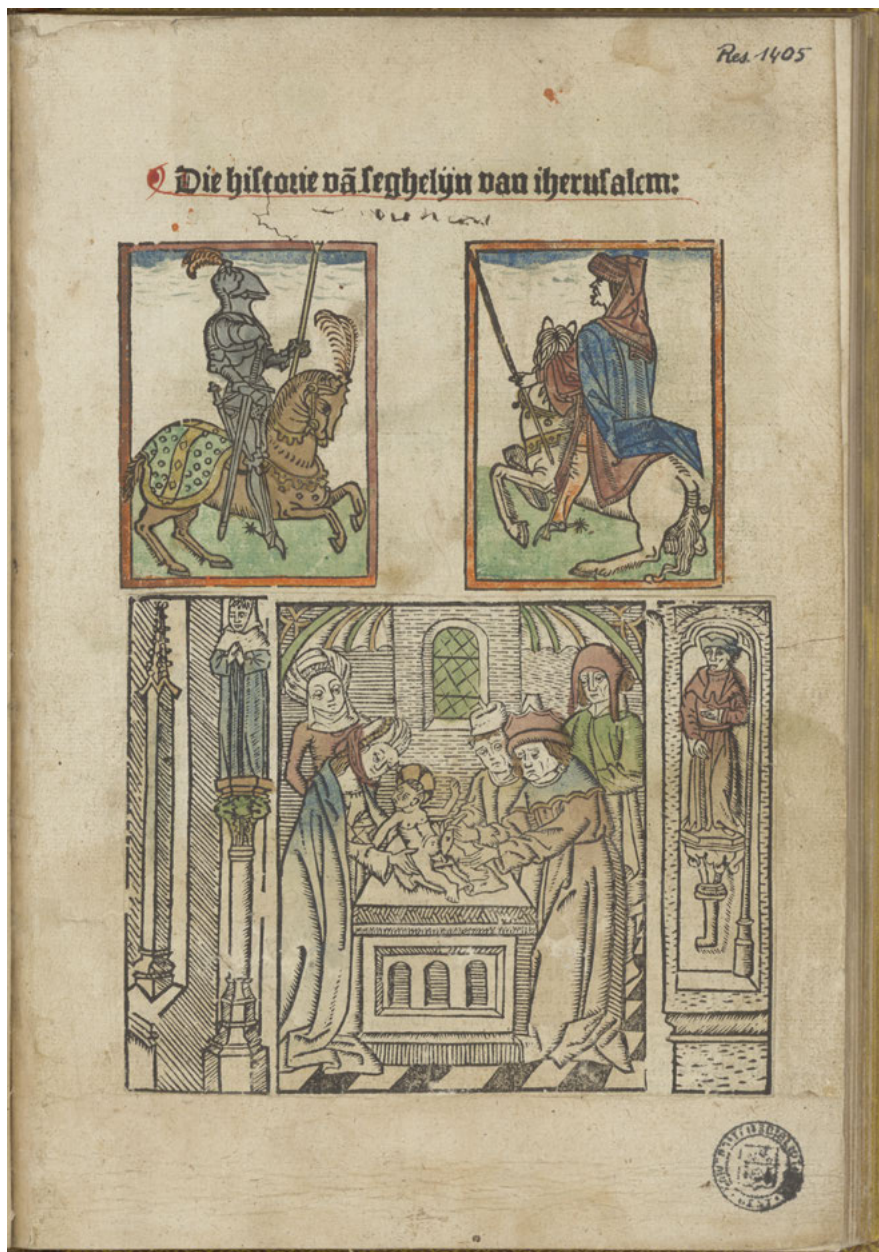 Res. 1405
Die historie vā seghelijn van iherusalem: